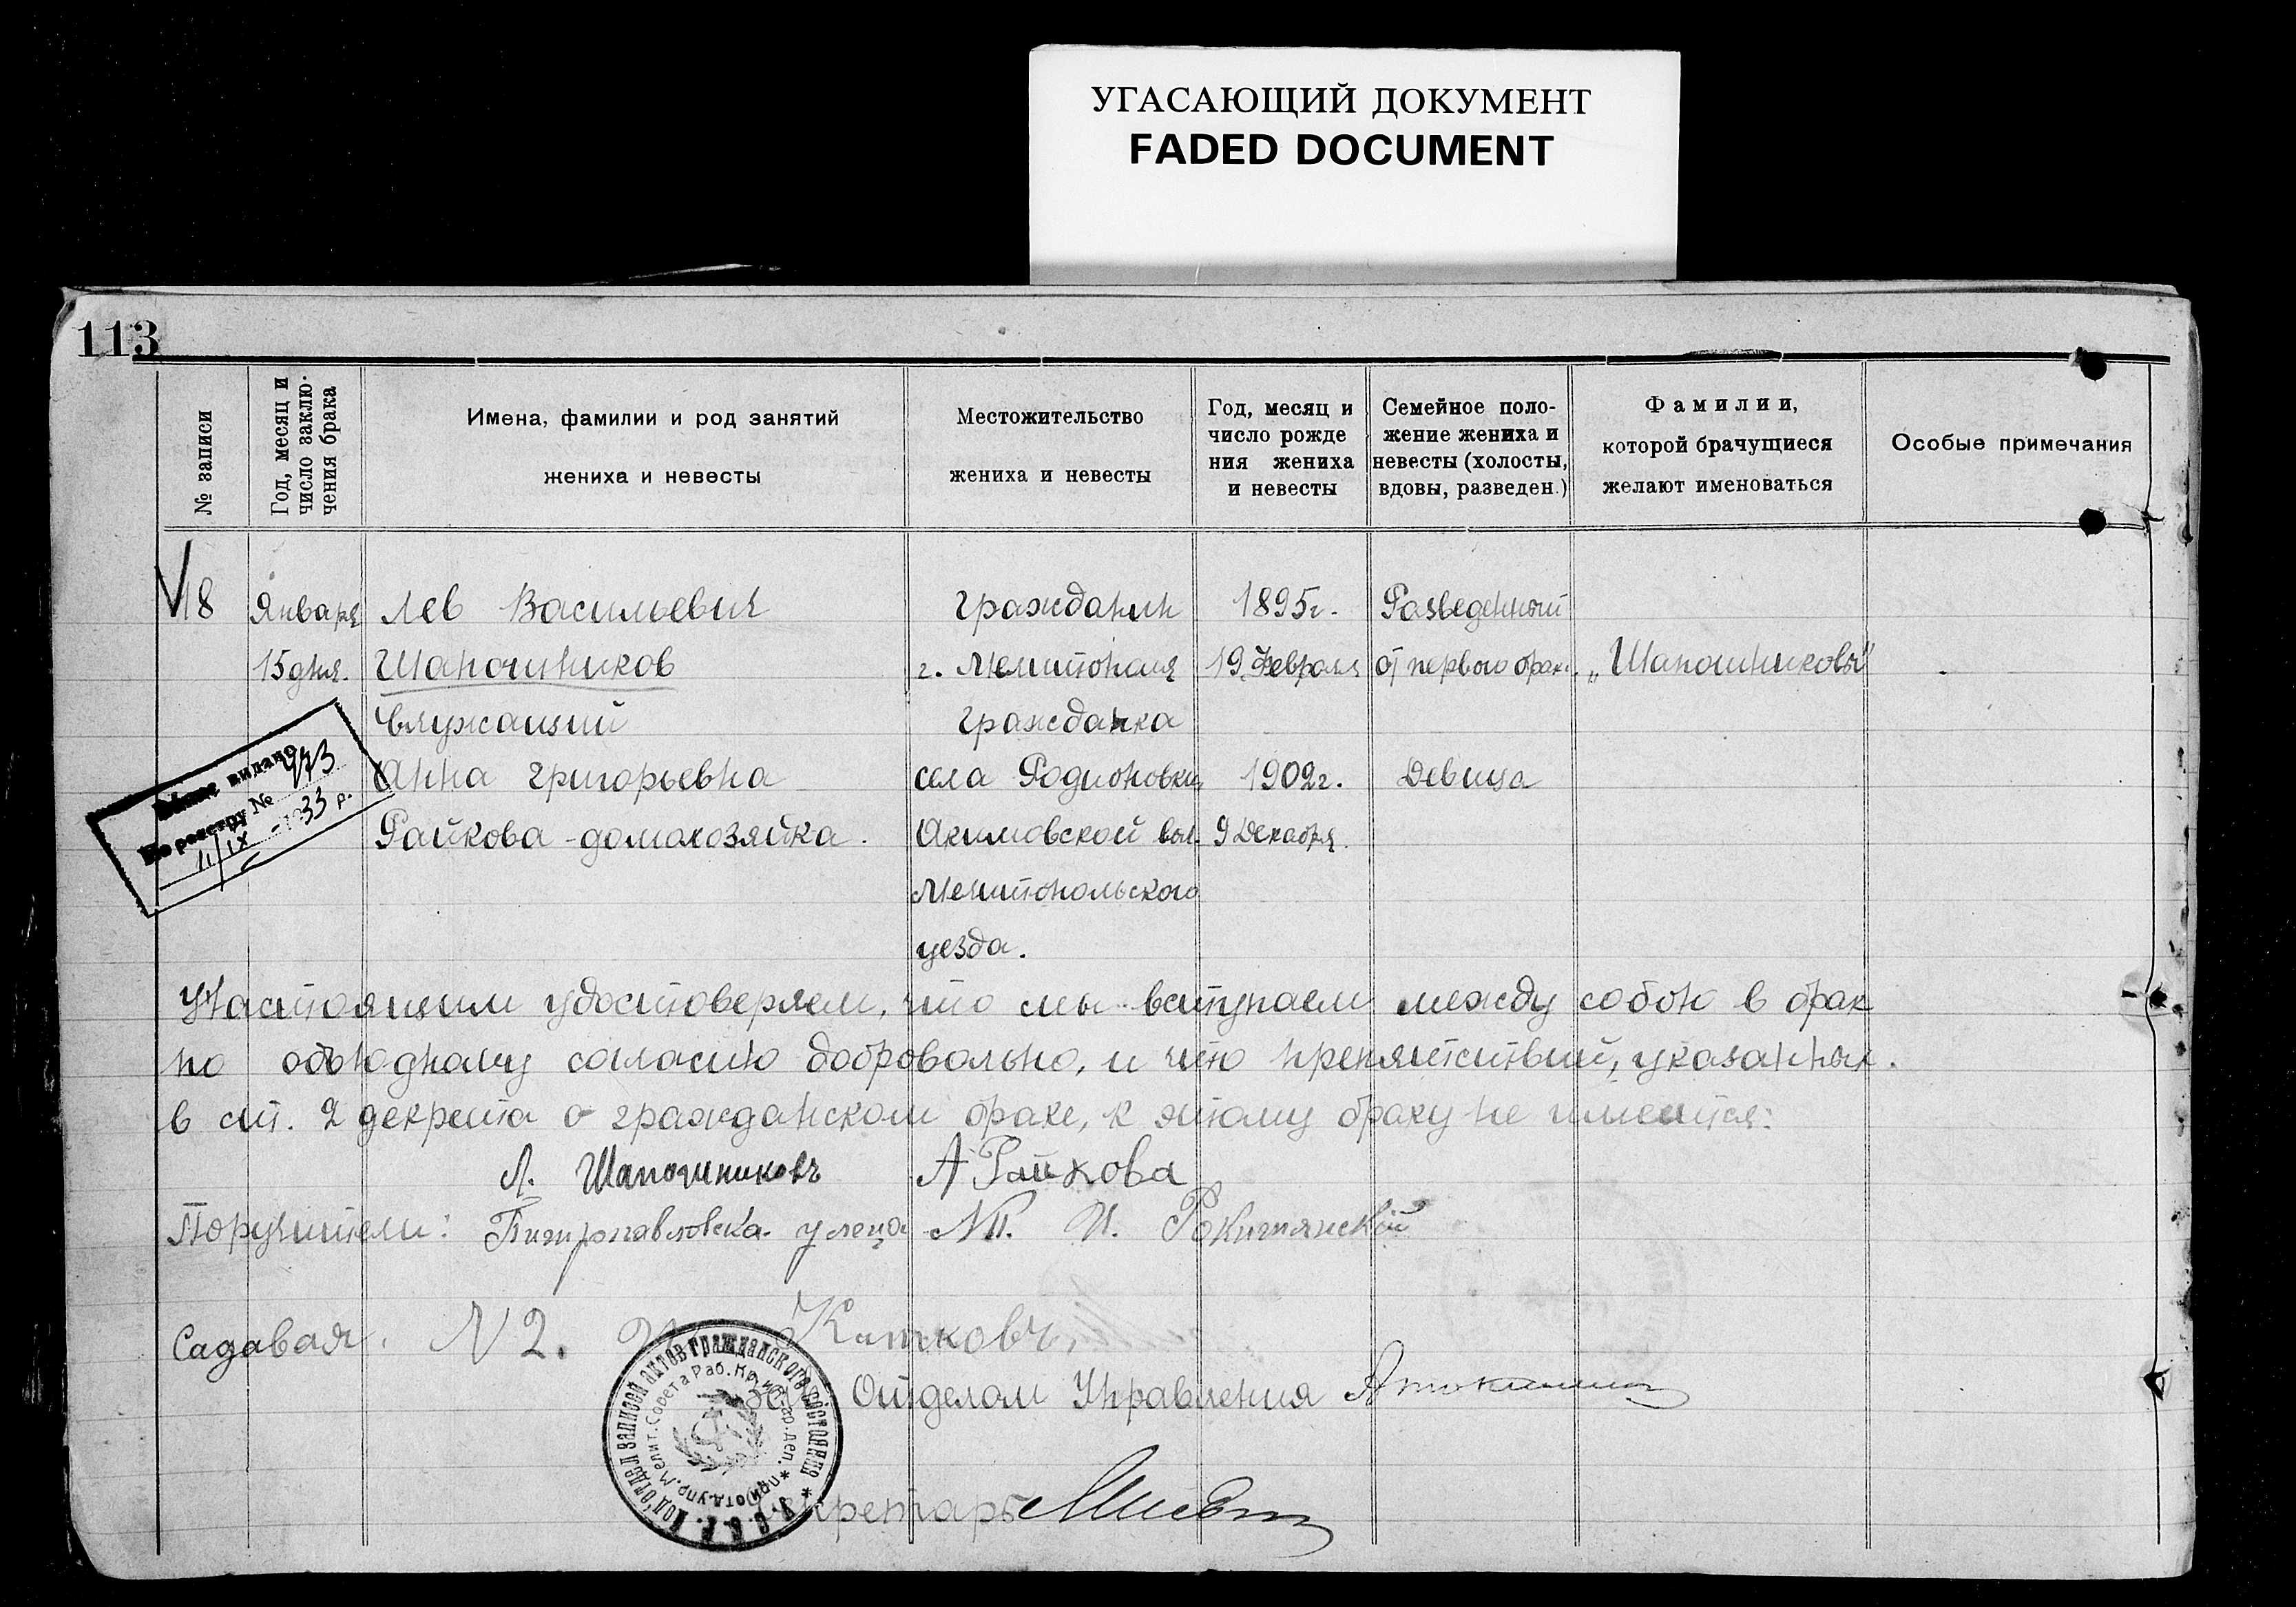 УГАСАЮЩИЙ ДОКУМЕНТ
FADED DOCUMENT
113
№ записи
Год, месяц и
число заклю-
чения брака
Имена, фамилии и род занятий
жениха и невесты
Местожительство
жениха и невесты
Год, месяц и
число рожде
ния жениха
и невесты
Семейное поло-
жение жениха и
невесты (холосты,
вдовы, разведен.)
Фамилии,
которой брачущиеся
желают именоваться
Особые примечания
18 Января Лев Васильевич гражданин 1895г. Разведенный
15 дня. Шапошников г. Мелитополя 19 Февраля от первого брак. „Шапошниковы"
Служащий гражданка
Анна Григорьевна села Родионовки 1902г. Девица
Райкова - домохозяйка. Акимовской вол. 9 Декабря.
Мелитопольского
уезда.
выдано 973
По реестру №
11/IX - 1933 р.
Настоящим удостоверяем, что мы вступаем между собою в брак
по обоюдному согласию добровольно, и что препятствий, указанных
в ст. 2 декрета о гражданском браке, к этому браку не имеется:
Л. Шапошниковъ А Райкова
Поручители: Питропавловска. улеца N 11. И. Рокитянской
Садавая. N 2. Катковъ,
Отделом Управления
Секретарь
Подотдел записей актов гражданского состояния * У.С.С.Р. *
при Отд. Упр. Мелит. Совета Раб. Кр. и Кр.-ар. деп. *